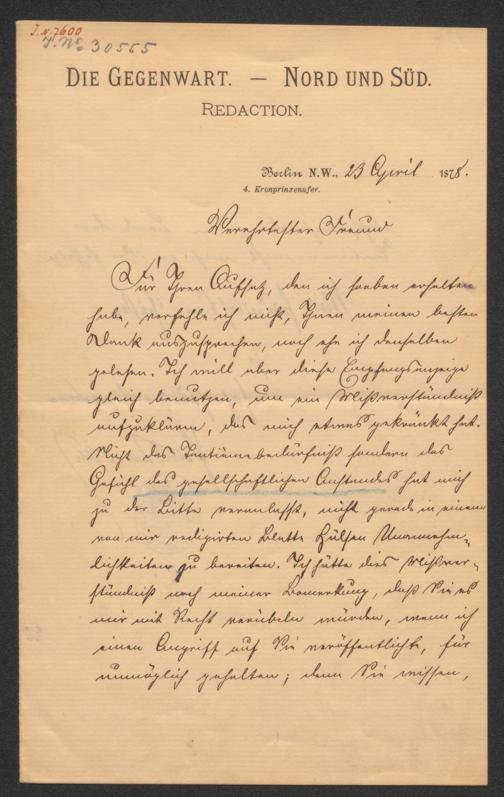 J. N. 7600
J. No 30555
DIE GEGENWART. — NORD UND SÜD.
REDACTION.
Berlin N.W., 23 April 1878.
4. Kronprinzenufer.
Verehrtester Freund
Für Ihren Aufsatz, den ich soeben erhalten
habe, verfehle ich nicht, Ihnen meinen besten
Dank auszusprechen, noch ehe ich denselben
gelesen. Ich will aber diese Empfangsanzeige
gleich benutzen, um ein Mißverständniß
aufzuklären, das mich etwas gekränkt hat.
Nicht das Intimebedürfniß sondern das
Gefühl des gesellschaftlichen Anstandes hat mich
zu der Bitte veranlasst, nicht gerade in einem
von mir redigirten Blatte Hülsen Unannehm-
lichkeiten zu bereiten. Ich hätte dies Mißver-
ständniß nach meiner Bemerkung, daß Sie es
mir mit Recht verübeln würden, wenn ich
einen Angriff auf Sie veröffentlichte, für
unmöglich gehalten; denn Sie wissen,